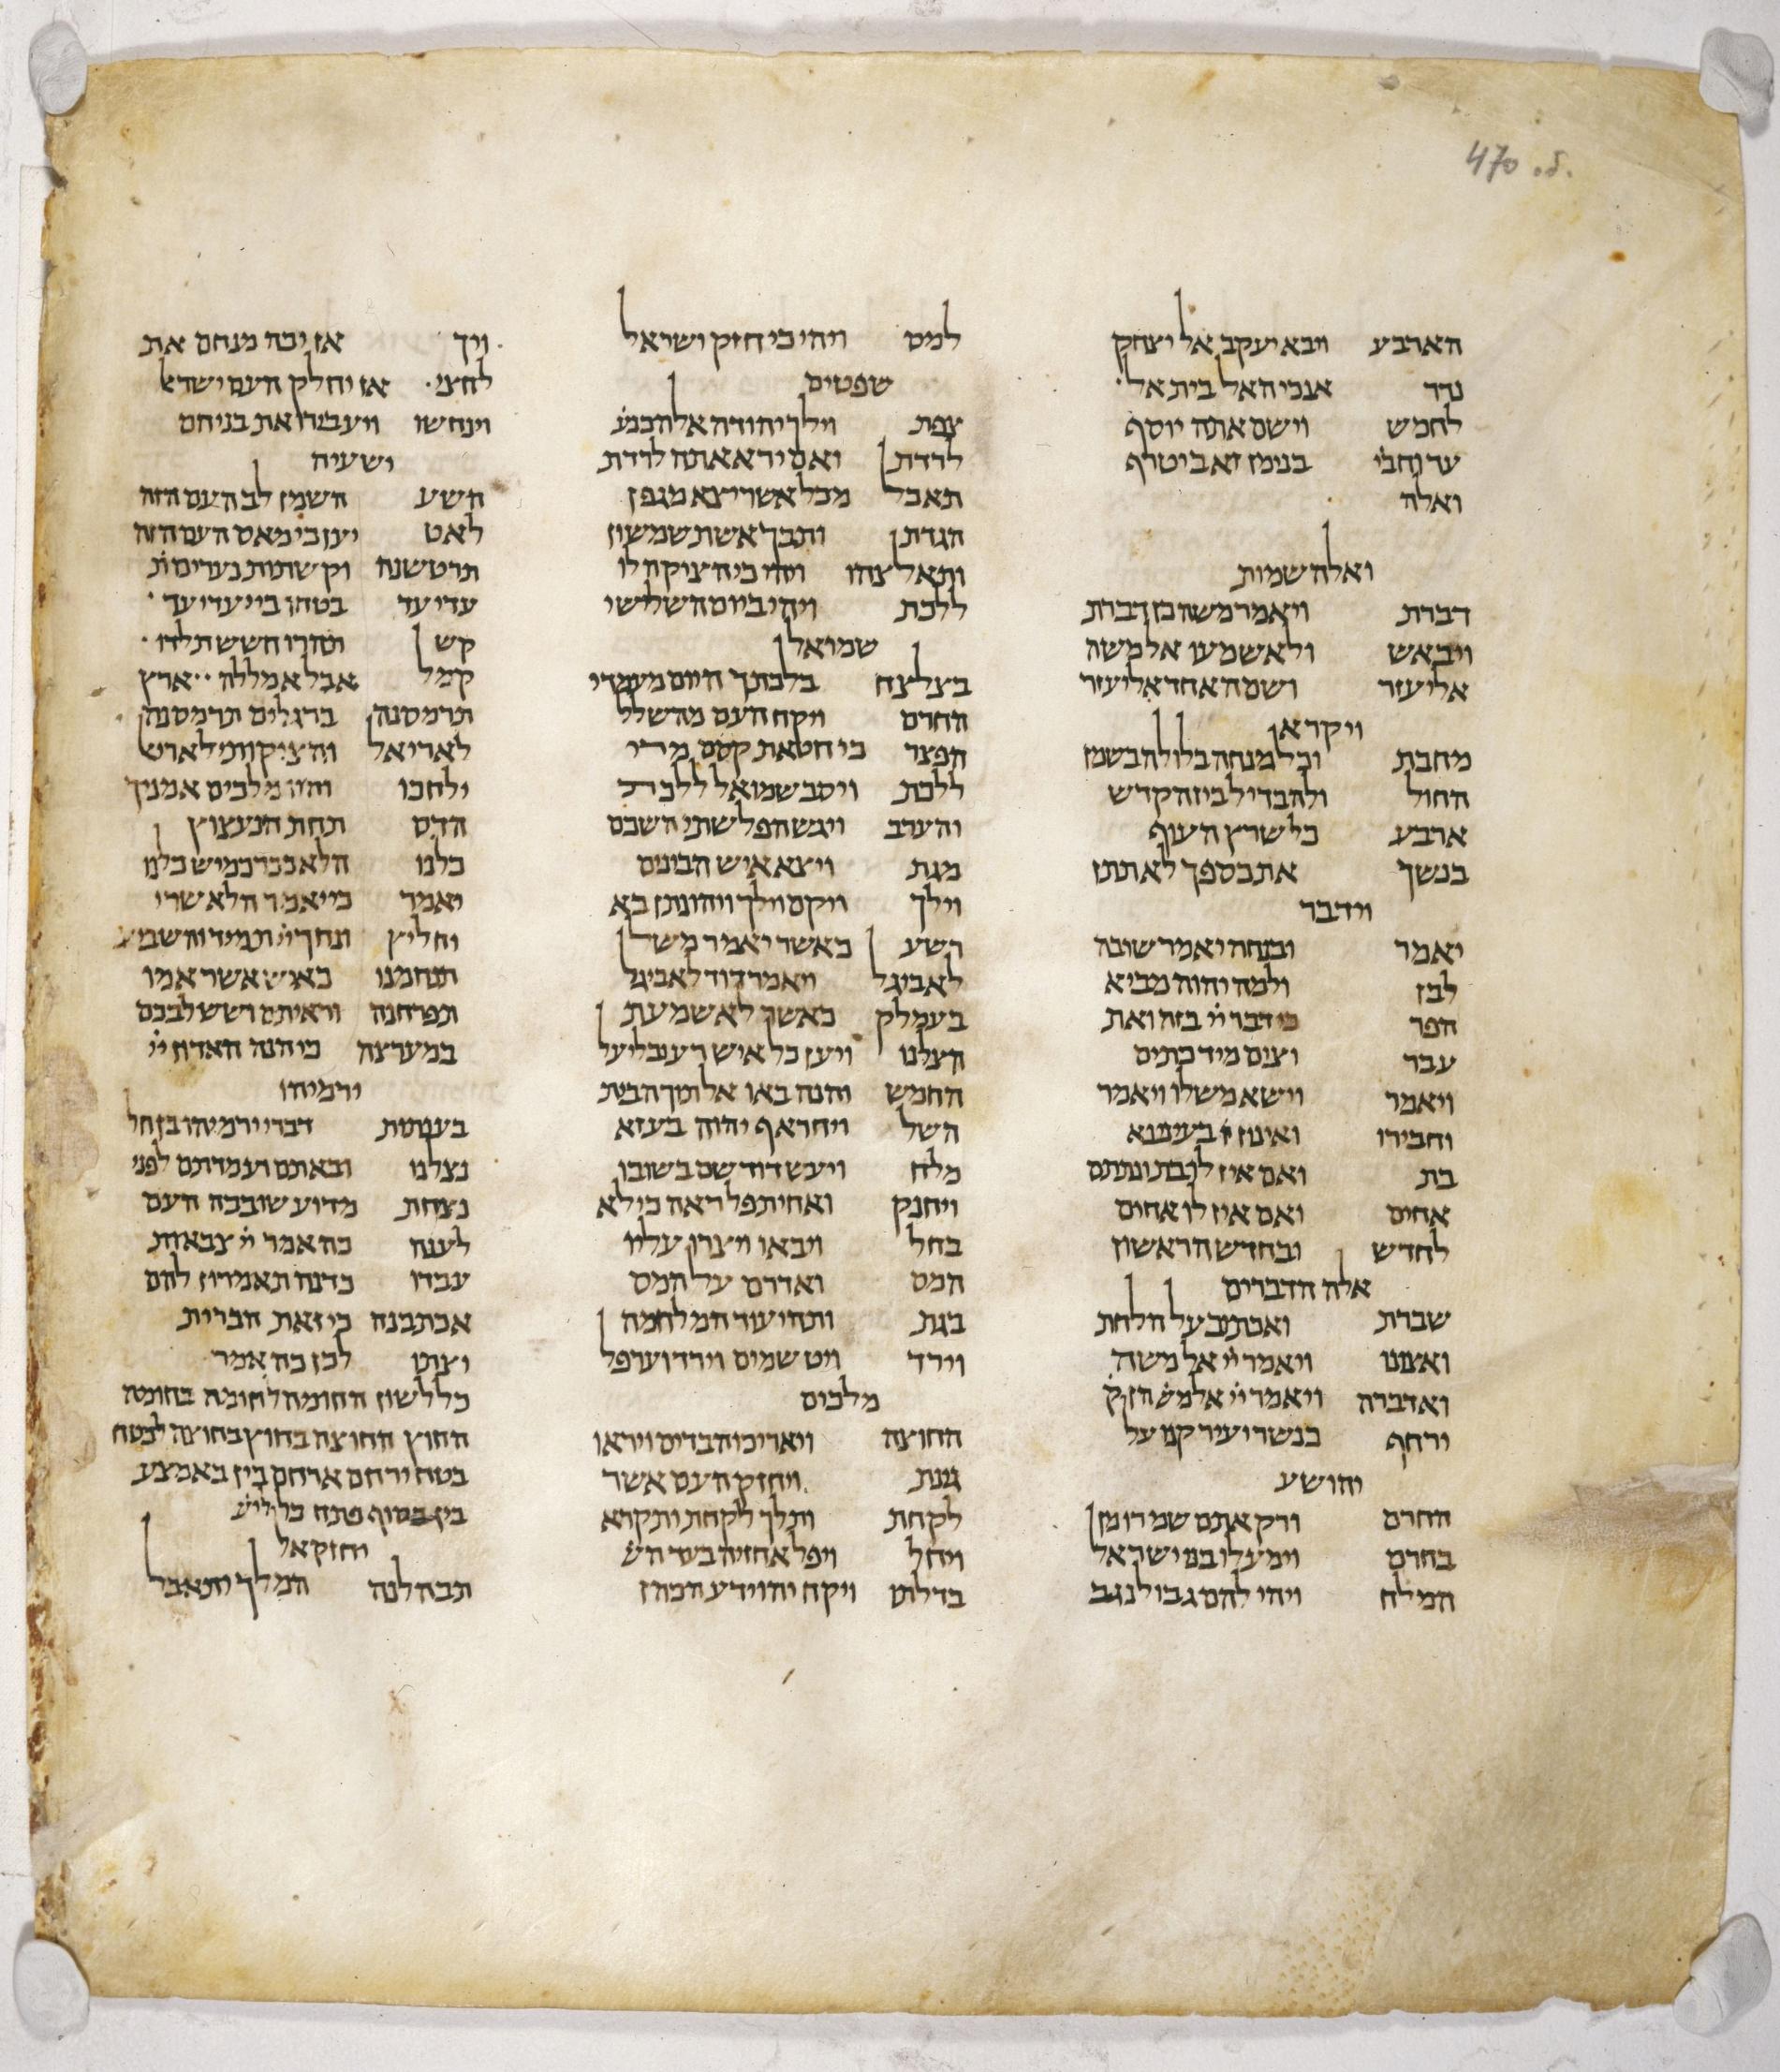 470 об.
הארבע ויבא יעקב אל יצחק
נדר אנכי האל בית אל
לחמש וישם אתה יוסף
ערוחבי בנימן זאב יטרף
ואלה
ואלה שמות
דברת ויאמר משה כן דברת
ויבאש ולא שמעו אל משה
אליעזר ושם האחד אליעזר
ויקרא
מחבת וכל מנחה בלולה בשמן
החול ולהבדיל בין הקדש
ארבע כל שרץ העוף
בנשך את כספך לא תתן
וידבר
יאמר ובנחה יאמר שובה
לבן ולמה יהוה מביא
הפר כי דבר ייי בזה ואת
עבר וצים מיד כתים
ויאמר וישא משלו ויאמר
וחבירו ואינון בעיננא
בת ואם אין לו בת ונתתם
אחים ואם אין לו אחים
לחדש ובחדש הראשון
אלה הדברים
שברת ואכתיב על הלחת
ואצונו ויאמר ייי אל משה
ואדברה ויאמר ייי אל מש הן קר
ירחף כנשר יעיר קנו על
יהושע
החרם ורק אתם שמרו מן
בחרם וימעלו בני ישראל
המלח ויהי להם גבול נגב
למס ויהי כי חזק ישראל
שפטים
צפת וילך יהודה אל הכנענ
לרדת ואם ירא אתה לרדת
תאכל מכל אשר יצא מגפן
הגדתן ותבך אשת שמשון
ותאלצהו ויהי כי הציקה לו
ללכת ויהי ביום השלישי
שמואל
בצלצח בלכתך היום מעמדי
החרם ויקח העם מהשלל
הפצר כי חטאת קסם מרי
ללכת ויסב שמואל ללכת
והערב ויגש הפלשתי השכם
מגת ויצא איש הבינים
וילך ויקם וילך ויהונתן בא
רשע כאשר יאמר משל
לאביגל ויאמר דוד לאביגל
בעמלק כאשר לא שמעת
הצלנו ויען כל איש רע ובליעל
החמש והנה באו אל תוך הבית
השל ויחר אף יהוה בעזא
מלח ויעש דוד שם בשובו
ויחנק ואחיתפל ראה כי לא
בחל ויבאו ויצרו עליו
המס ואדרם על המס
בגת ותהי עוד המלחמה
וירד ויט שמים וירד וערפל
מלכים
החוצה ויאריכו הבדים ויראו
גינת ויחזק העם אשר
לקחת ותלך לקחת ותקרא
ויחל ויפל אחזיה בעד הש
בדלתו ויקח יהוידע הכהן
ויך אז יכה מנחם את
לחצי אז יחלק העם ישראל
וינחשו ויעבירו את בניהם
ישעיה
השע השמן לב העם הזה
לאט יען כי מאס העם הזה
תרטשנה וקשתות נערים ת
עדי עד בטחו בייי עדי עד
קש תהרו חשש תלדו
קמל אבל אמללה ארץ
תרמסנה ברגלים תרמסנה
לאריאל והציקותי לאריא
ילחכו והיו מלכים אמניך
הדס תחת הנעצוץ
כלנו הלא ככרכמיש כלנו
יאמר כי יאמר הלא שרי
יחליץ ונחך ייי תמיד והשביע
תנחמנו כאיש אשר אמו
תפרחנה וראיתם ושש לבכם
במערצה כי הנה האדון ייי
ירמיהו
בענתת דברי ירמיהו בן חל
נצלנו ובאתם ועמדתם לפני
נצחת מדוע שובבה העם
לענה כה אמר ייי צבאות
עבדו כדנה תאמרון להם
אכתבנה כי זאת הברית
יצותו לכן כה אמר
כל לשון החומה לחומה בחומה
החוץ החוצה בחוץ בחוצה לבטח
בטח ירחם ארחם בין באמצע
בין בסוף פתח
יחזקאל
תבהלנה המלך יתאבל